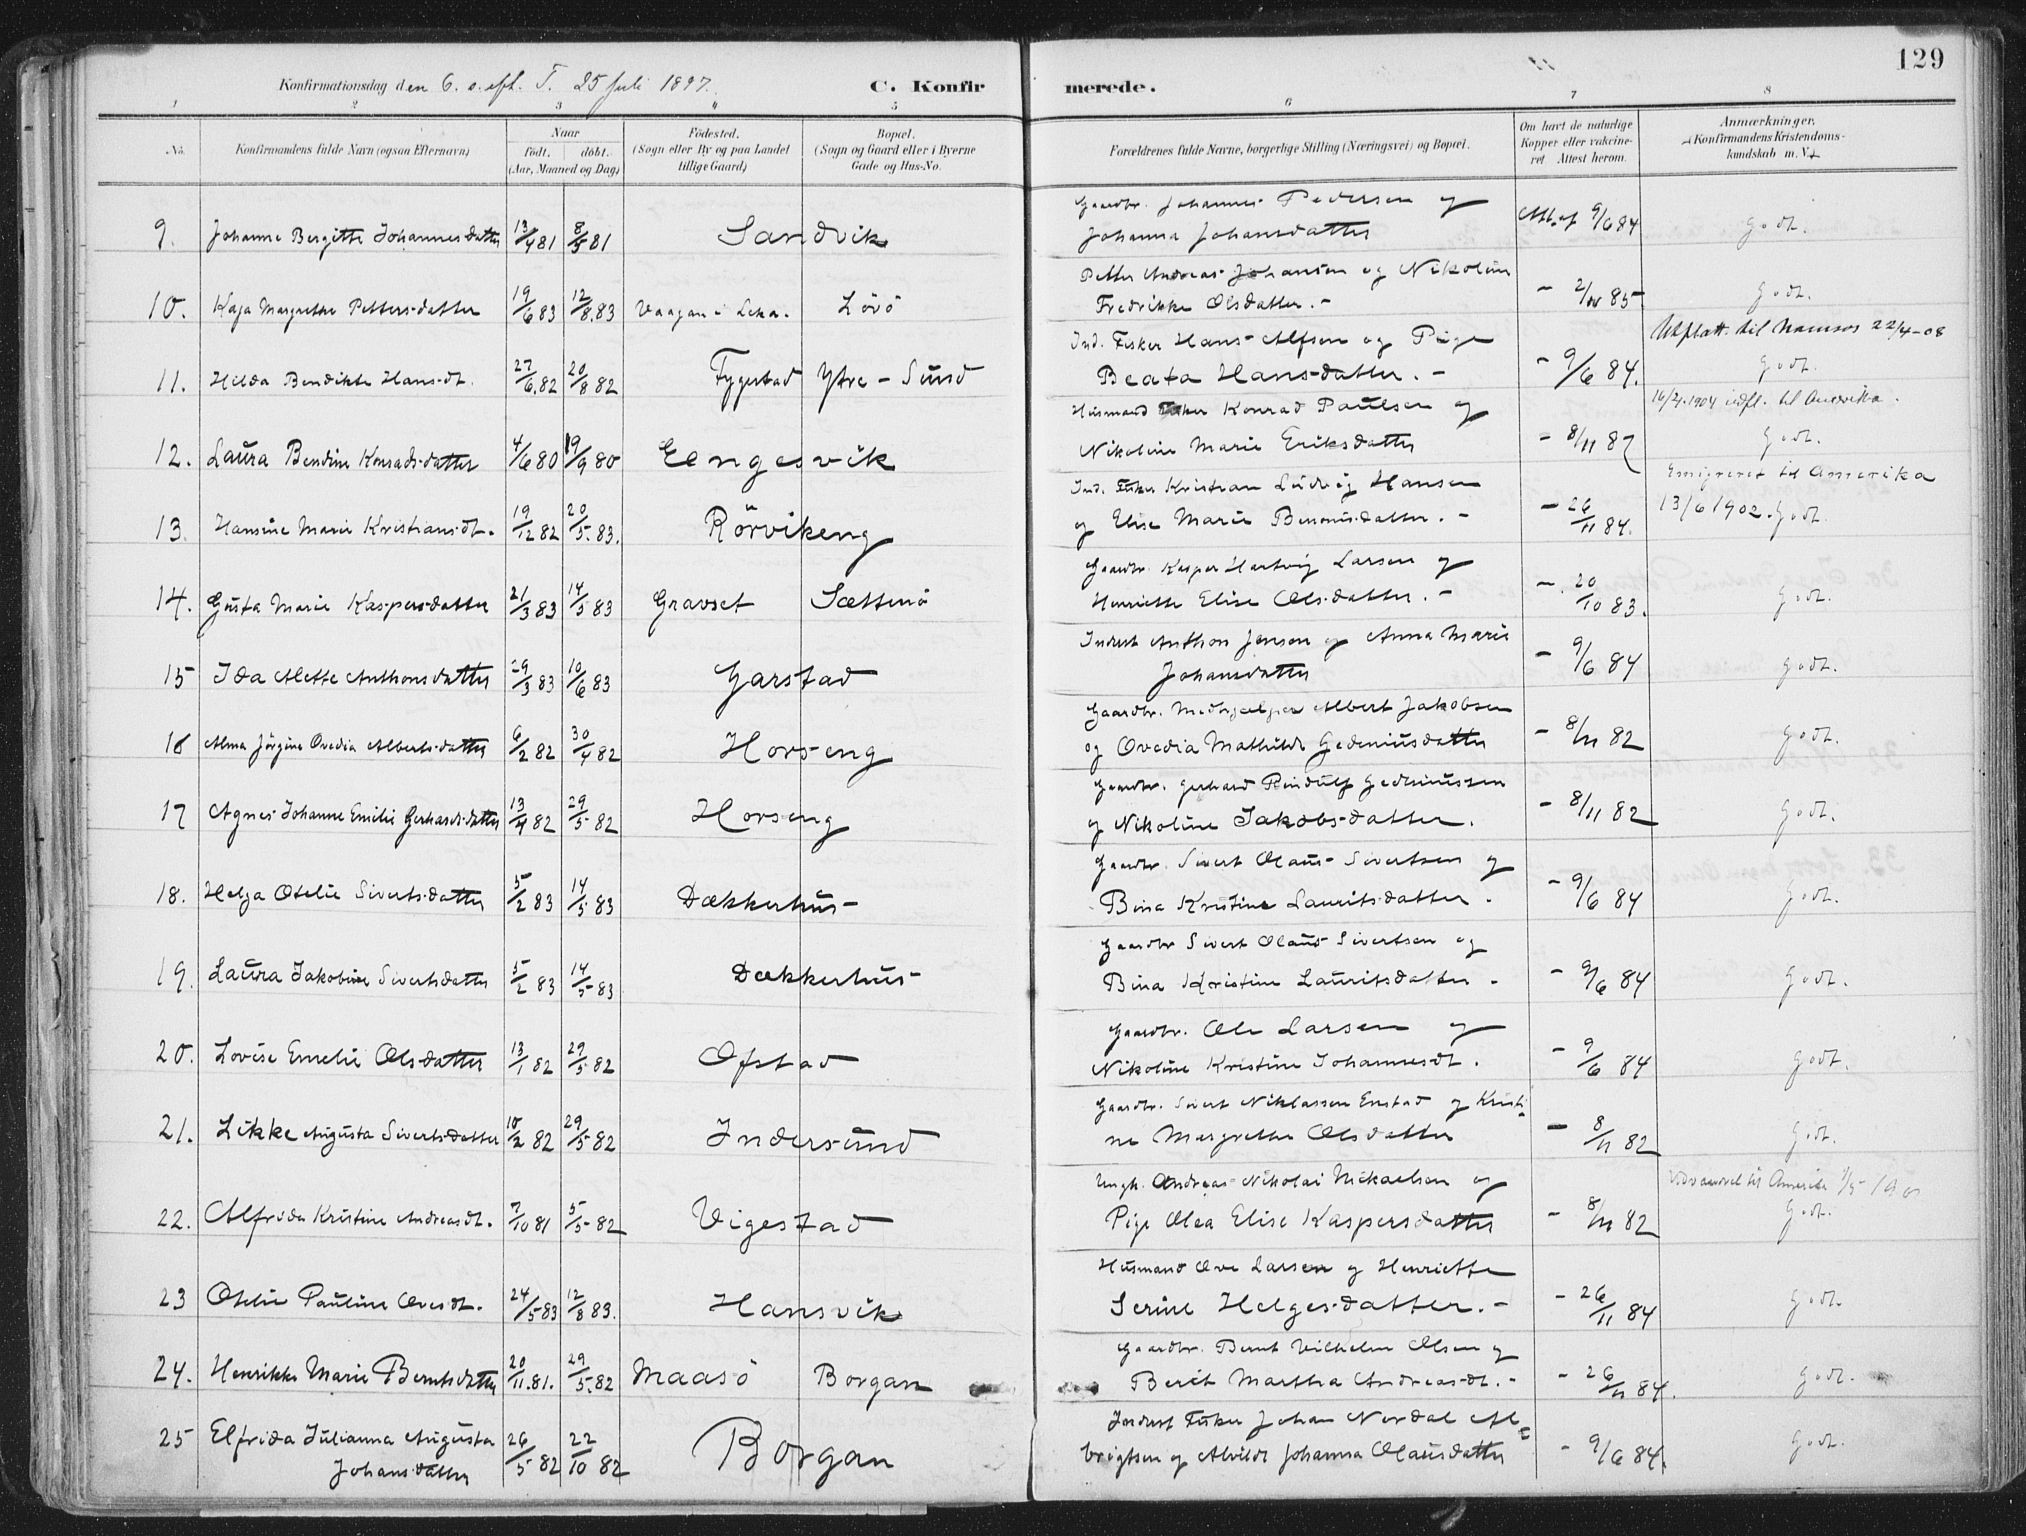 129
Konfirmationsdag den 6. s. eft. T. 25 juli 1897.
C. Konfirmerede.
1 2 3 4 5 6 7 8
No. Konfirmandens fulde Navn (ogsaa Efternavn) Naar født. døbt. (Aar, Maaned og Dag) Fødested. (Sogn eller By og paa Landet tillige Gaard) Bopæl. (Sogn og Gaard eller i Byerne Gade og Hus-No. Forældrenes fulde Navne, borgerlige Stilling (Næringsvei) og Bopæl. Om havt de naturlige Kopper eller vakcineret Attest herom. Anmærkninger. (Konfirmandens Kristendomskundskab m. V.)
9. Johanne Bergitte Johannesdatter 13/4 81 8/5 81 Sandvik Gaardbr. Johannes Pedersen og
Johanna Johansdatter Att. af 9/6 84 Godt.
10. Kaja Margrethe Pettersdatter 19/6 83 12/8 83 Vaagan i Leka. Løvø Petter Andreas Johansen og Nikoline
Fredrikke Olsdatter. - 2/10 85 Godt.
Utflatt. til Namsos 22/4-08
11. Hilda Bendikte Hansdt. 27/6 82 20/8 82 Fygestad Ytre-Sund Ind. Fisker Hans Alfsen og Pige
Beata Hansdatter. - 9/6 84. Godt.
16/4.1904 udfl. til Amerika.
12. Laura Bendine Konradsdatter 4/6 80 19/9 80 Elngesvik Husmand Fisker Konrad Paulsen og
Nikoline Marie Eriksdatter - 8/11 87 Godt.
Emigreret til Amerika
13. Hansine Marie Kristiansdt. 19/12 82 20/5 83. Rörvikeng Ind. Fisker Kristian Ludvig Hansen
og Elise Marie Beroniusdatter. - 26/11 84. 13/6 1902. Godt.
14. Gusta Marie Kaspersdatter 21/3 83 14/5 83 Gravset Sættenø Gaardbr. Kasper Hartvig Larsen og
Henriette Elise Olsdatter. - 20/10 83. Godt.
15 Ida Alette Anthonsdatter 29/3 83 10/6 83 Garstad Inderst Anthon Jensen og Anna Marie
Johansdatter - 9/6 84 Godt.
16 Alma Jørgine Ovedia Albertsdatter 6/2 82 30/4 82 Horseng Gaardbr. Medhjælper Albert Jakobsen
og Ovedia Mathilde Gedeniusdatter - 8/11 82 Godt.
17 Agnes Johanne Emilie Gerhardsdatter 13/4 82 29/5 82 Horseng Gaardbr. Gerhard Rindulf Gedeniussen
og Nikoline Jakobsdatter. - 8/11 82 Godt.
18. Helga Otelie Sivertsdatter 5/2 83 14/5 83 Dækkerhus Gaardbr. Sivert Olaus Sivertsen og
Bina Kristine Lauritsdatter. - 9/6 84 Godt.
19. Laura Jakobine Sivertsdatter 5/2 83 14/5 83 Dækkerhus Gaardbr Sivert Olaus Sivertsen og
Bina Kristine Lauritsdatter - 9/6 84 Godt.
20. Lovise Emelie Olsdatter 13/1 82 29/5 82 Ofstad Gaardbr. Ole Larsen og
Nikoline Kristine Johannesdt. - 9/6 84 Godt.
21. Likke Augusta Sivertsdatter 10/2 82 29/5 82 Indersund Gaardbr. Sivert Niklassen Enstad og Kristi-
ne Margrethe Olsdatter - 8/11 82 Godt.
22. Alfrida Kristine Andreasdt. 7/10 81 5/5 82 Vigestad Ungk. Andreas Nikolai Mickaelsen og
Pige Olea Elise Kaspersdatter - 8/11 82 Godt.
23 Otelie Pauline Ovesdt. 24/5 83 12/8 83. Hansvik Husmand Ove Larsen og Henriette
Serine Helgesdatter. - 26/11 84 Godt.
24. Henrikke Marie Berntsdatter 20/11 81. 29/5 82 Maasö Borgan Gaardbr. Bernt Vilhelm Olsen og
Berit Martha Andreasdt. - 26/11 84. Godt.
25 Elfrida Julianna Augusta
Johansdatter 26/5 82 22/10 82 Borgan Inderst Fisker Johan Nordal Al=
brigtsen og Alvilde Johanna Olausdatter - 9/6 84. Godt.